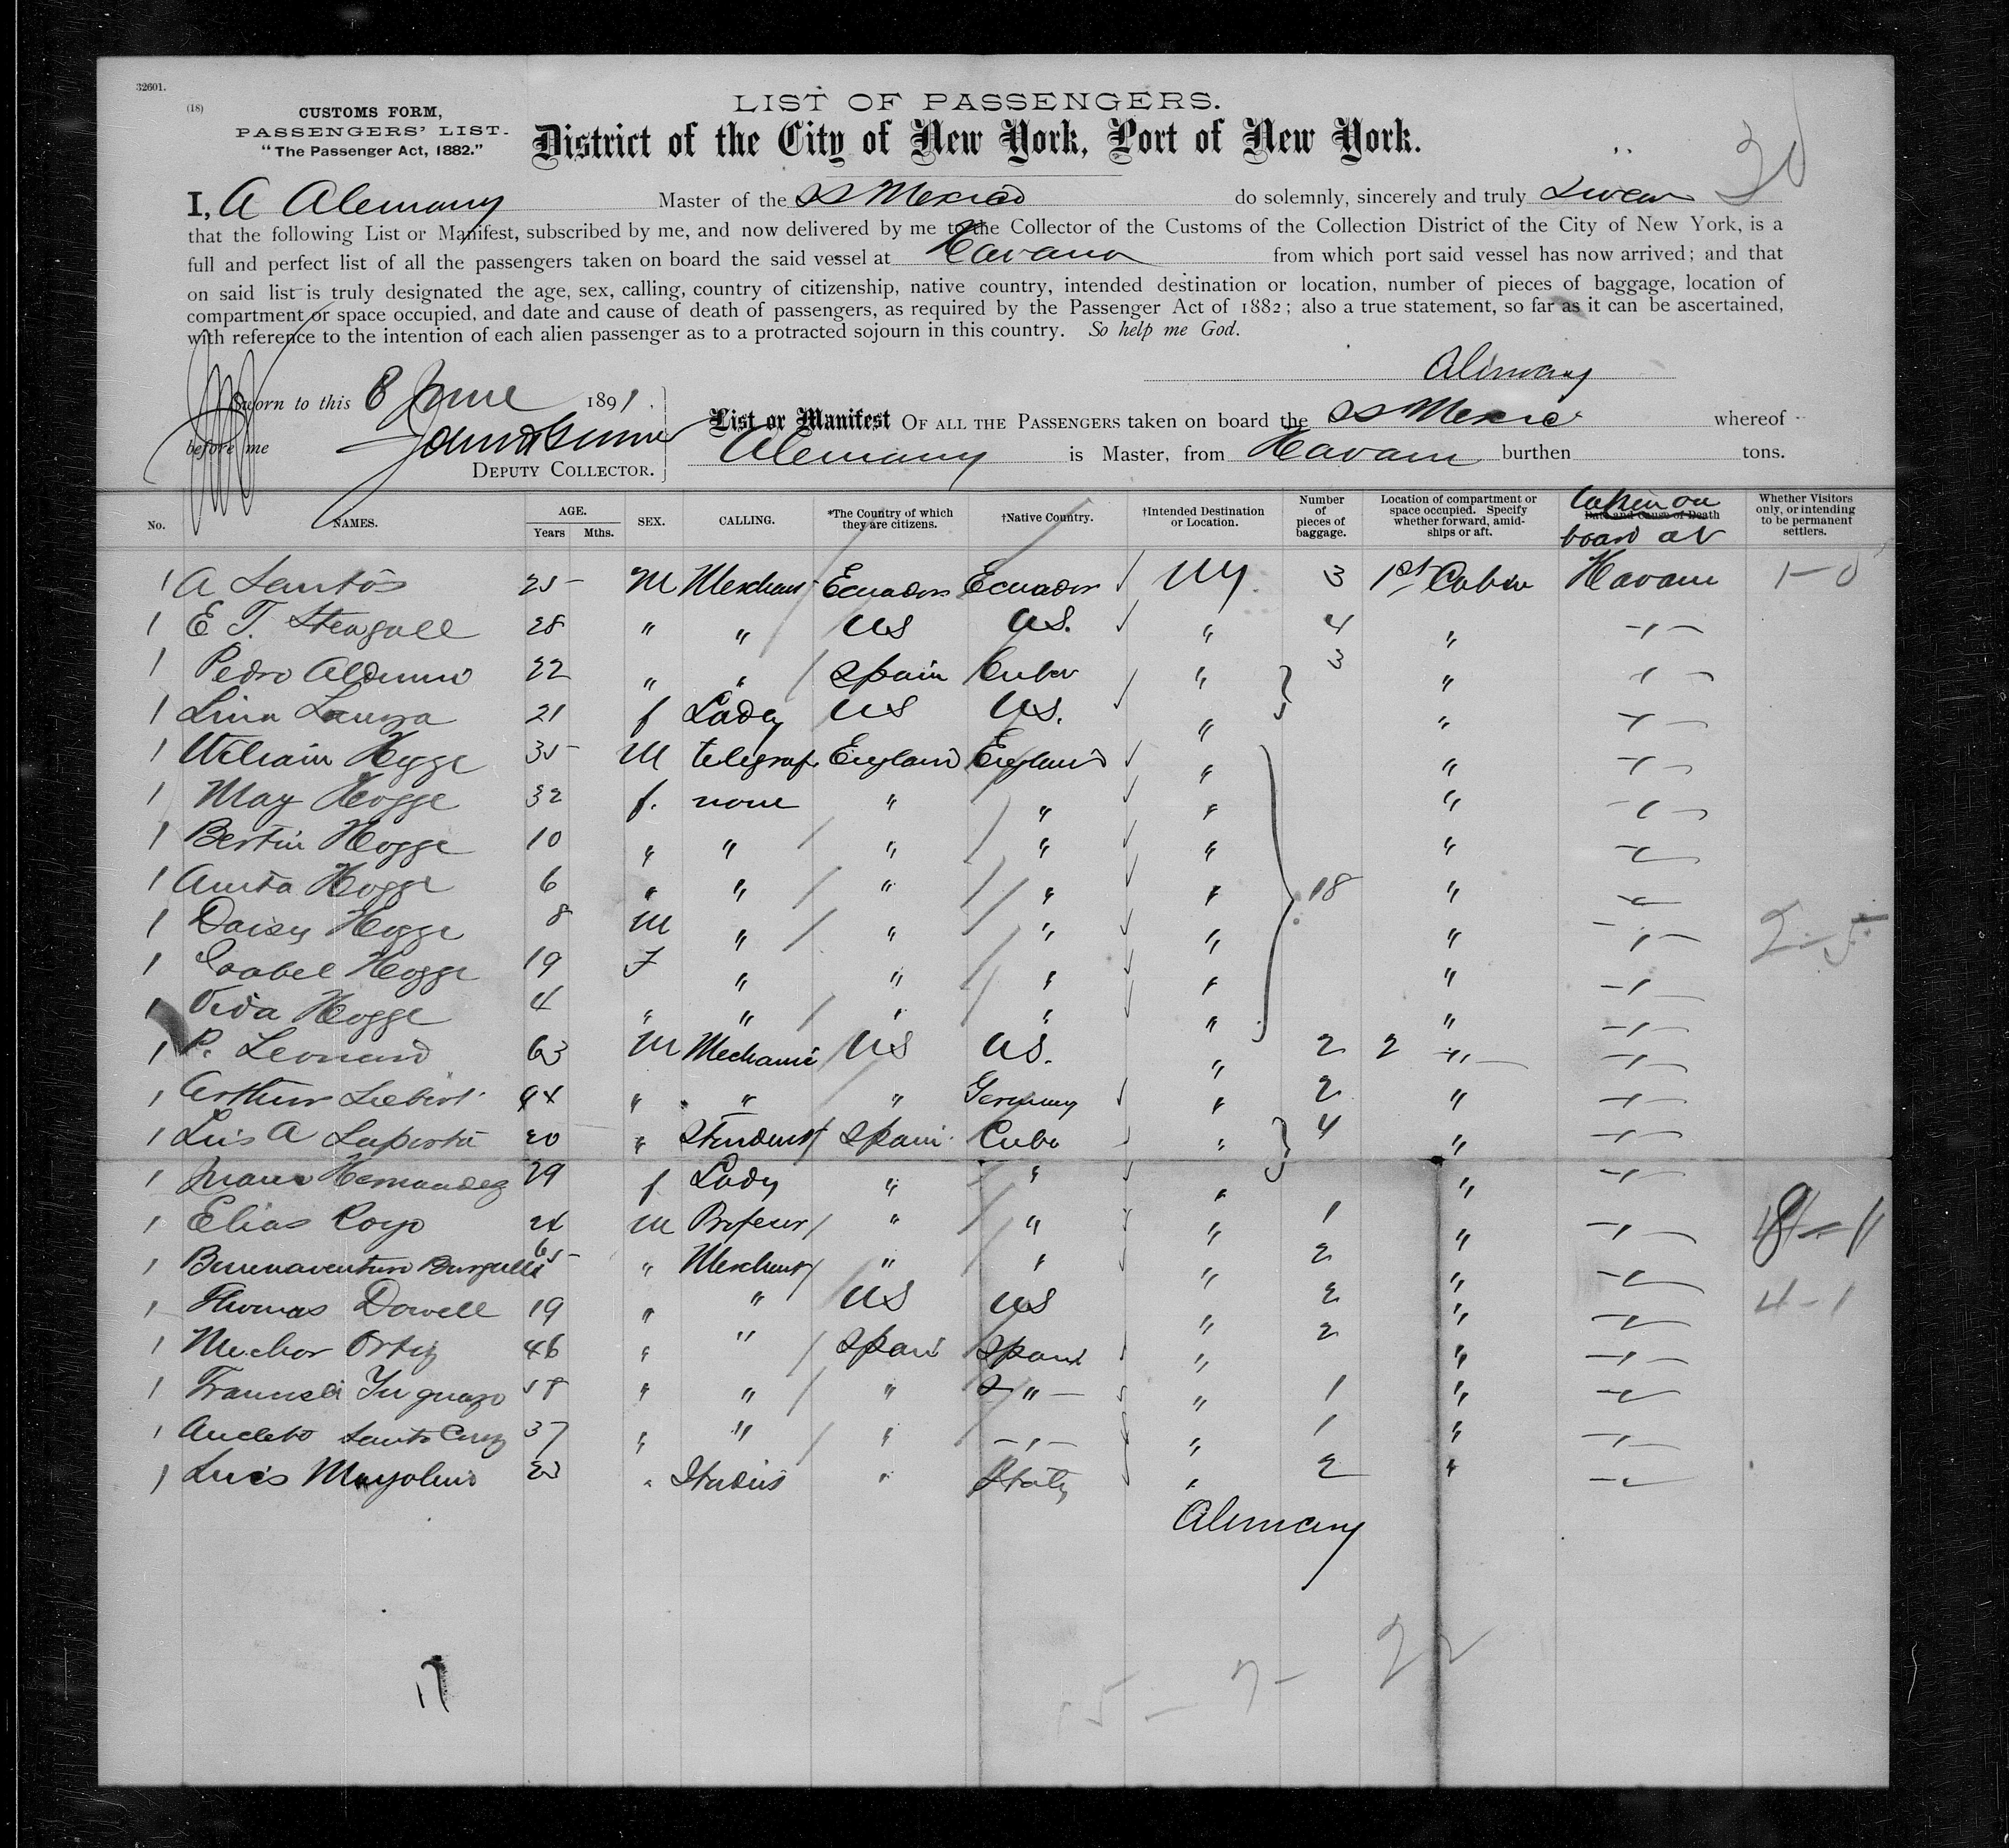 32601.
(18)
CUSTOMS FORM,
PASSENGERS' LIST.
"The Passenger Act, 1882."
LIST OF PASSENGERS.
District of the City of New York, Port of New York.
30
I, A Alemany Master of the SS Mexico do solemnly, sincerely and truly Swear
that the following List or Manifest, subscribed by me, and now delivered by me to the Collector of the Customs of the Collection District of the City of New York, is a
full and perfect list of all the passengers taken on board the said vessel at Havana from which port said vessel has now arrived; and that
on said list is truly designated the age, sex, calling, country of citizenship, native country, intended destination or location, number of pieces of baggage, location of
compartment or space occupied, and date and cause of death of passengers, as required by the Passenger Act of 1882; also a true statement, so far as it can be ascertained,
with reference to the intention of each alien passenger as to a protracted sojourn in this country. So help me God.
Alemany
Sworn to this 8 June 1891.
before me
DEPUTY COLLECTOR.
List or Manifest OF ALL THE PASSENGERS taken on board the SS Mexico whereof
Alemany is Master, from Havana burthen tons.
No. NAMES. AGE. Years Mths. SEX. CALLING. *The Country of which they are citizens. †Native Country. †Intended Destination or Location. Number of pieces of baggage. Location of compartment or space occupied. Specify whether forward, amidships or aft. Date and Cause of Death taken on board at Whether Visitors only, or intending to be permanent settlers.
1 A Santos 25 M Merchant Ecuador Ecuador NY 3 1st Cabin Havana 1-0
1 E T. Steagall 28 " " US US. " 4 " -"-
1 Pedro 22 " " Spain Cuba " 3 " -"-
1 Lina 21 f Lady US US. " " -"-
1 William Hogge 35 M telegraf. England England " " -"-
1 May Hogge 32 f. none " " " " -"-
1 Bertin Hogge 10 " " " " " " -"-
1 Anita Hogge 6 " " " " " 18 " -"-
1 Daisy Hogge 8 M " " " " " -"- 2-5
1 Isabel Hogge 19 F " " " " " -"-
1 Vida Hogge 4 " " " " " " -"-
1 P. Leonard 63 M Mechanic US US. " 2 2 -"- -"-
1 Arthur Liebert 44 " " " Germany " 2 " -"-
1 Luis A 20 " Student Spain Cuba " 4 " -"-
1 Juana Hernandez 29 f Lady " " " " -"-
1 Elias Royo 24 M Profesor " " " 1 " -"-
1 Buenaventura 65 " Merchant " " " 2 " -"-
1 Thomas Dowell 19 " " US US " 2 " -"- 4-1
1 Melchor Ortiz 46 " " Spain Spain " 2 " -"-
1 58 " " " -"- " 1 " -"-
1 Ancleto Santa Cruz 37 " " " -"- " 1 " -"-
1 Luis 23 " " Italy " 2 " -"-
Alemany
15 - 7 - 22
17